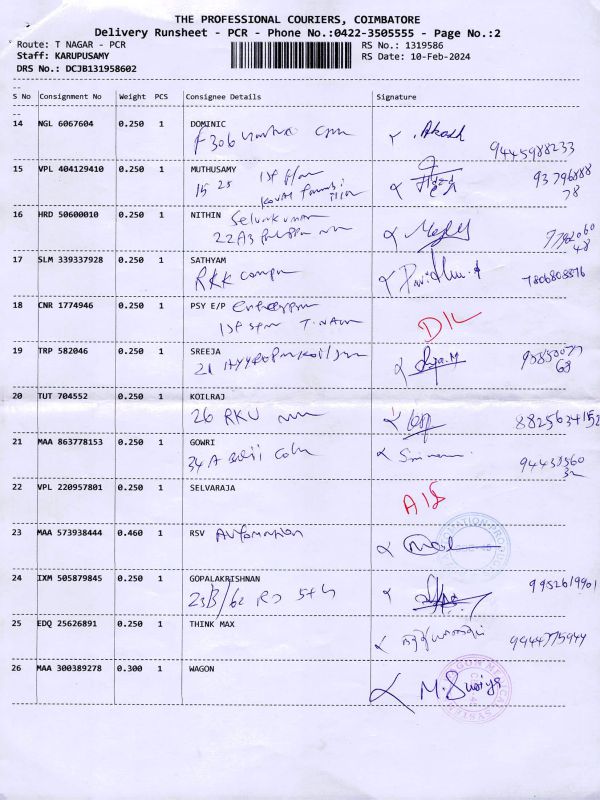 THE PROFESSIONAL COURIERS, COIMBATORE
Delivery Runsheet - PCR - Phone No.:0422-3505555 - Page No.:2
Route: T NAGAR - PCR RS No.: 1319586
Staff: KARUPUSAMY RS Date: 10-Feb-2024
DRS No.: DCJB131958602
S No Consignment No Weight PCS Consignee Details Signature
14 NGL 6067604 0.250 1 DOMINIC
F306
Akash
9445988233
15 VPL 404129410 0.250 1 MUTHUSAMY
1st floor
93796888
78
16 HRD 50600010 0.250 1 NITHIN Selvakumar
22A3
7792060
48
17 SLM 339337928 0.250 1 SATHYAM
RKK
7806808876
18 CNR 1774946 0.250 1 PSY E/P
1st T.Nagar
D/L
19 TRP 582046 0.250 1 SREEJA
21
20 TUT 704552 0.250 1 KOILRAJ
26 RKV
8825634152
21 MAA 863778153 0.250 1 GOWRI
34A
94433560
32
22 VPL 220957801 0.250 1 SELVARAJA
A/S
23 MAA 573938444 0.460 1 RSV Automation
24 IXM 505879845 0.250 1 GOPALAKRISHNAN
23B/62
9952619901
25 EDQ 25626891 0.250 1 THINK MAX
9944775944
26 MAA 300389278 0.300 1 WAGON
M. Suriya